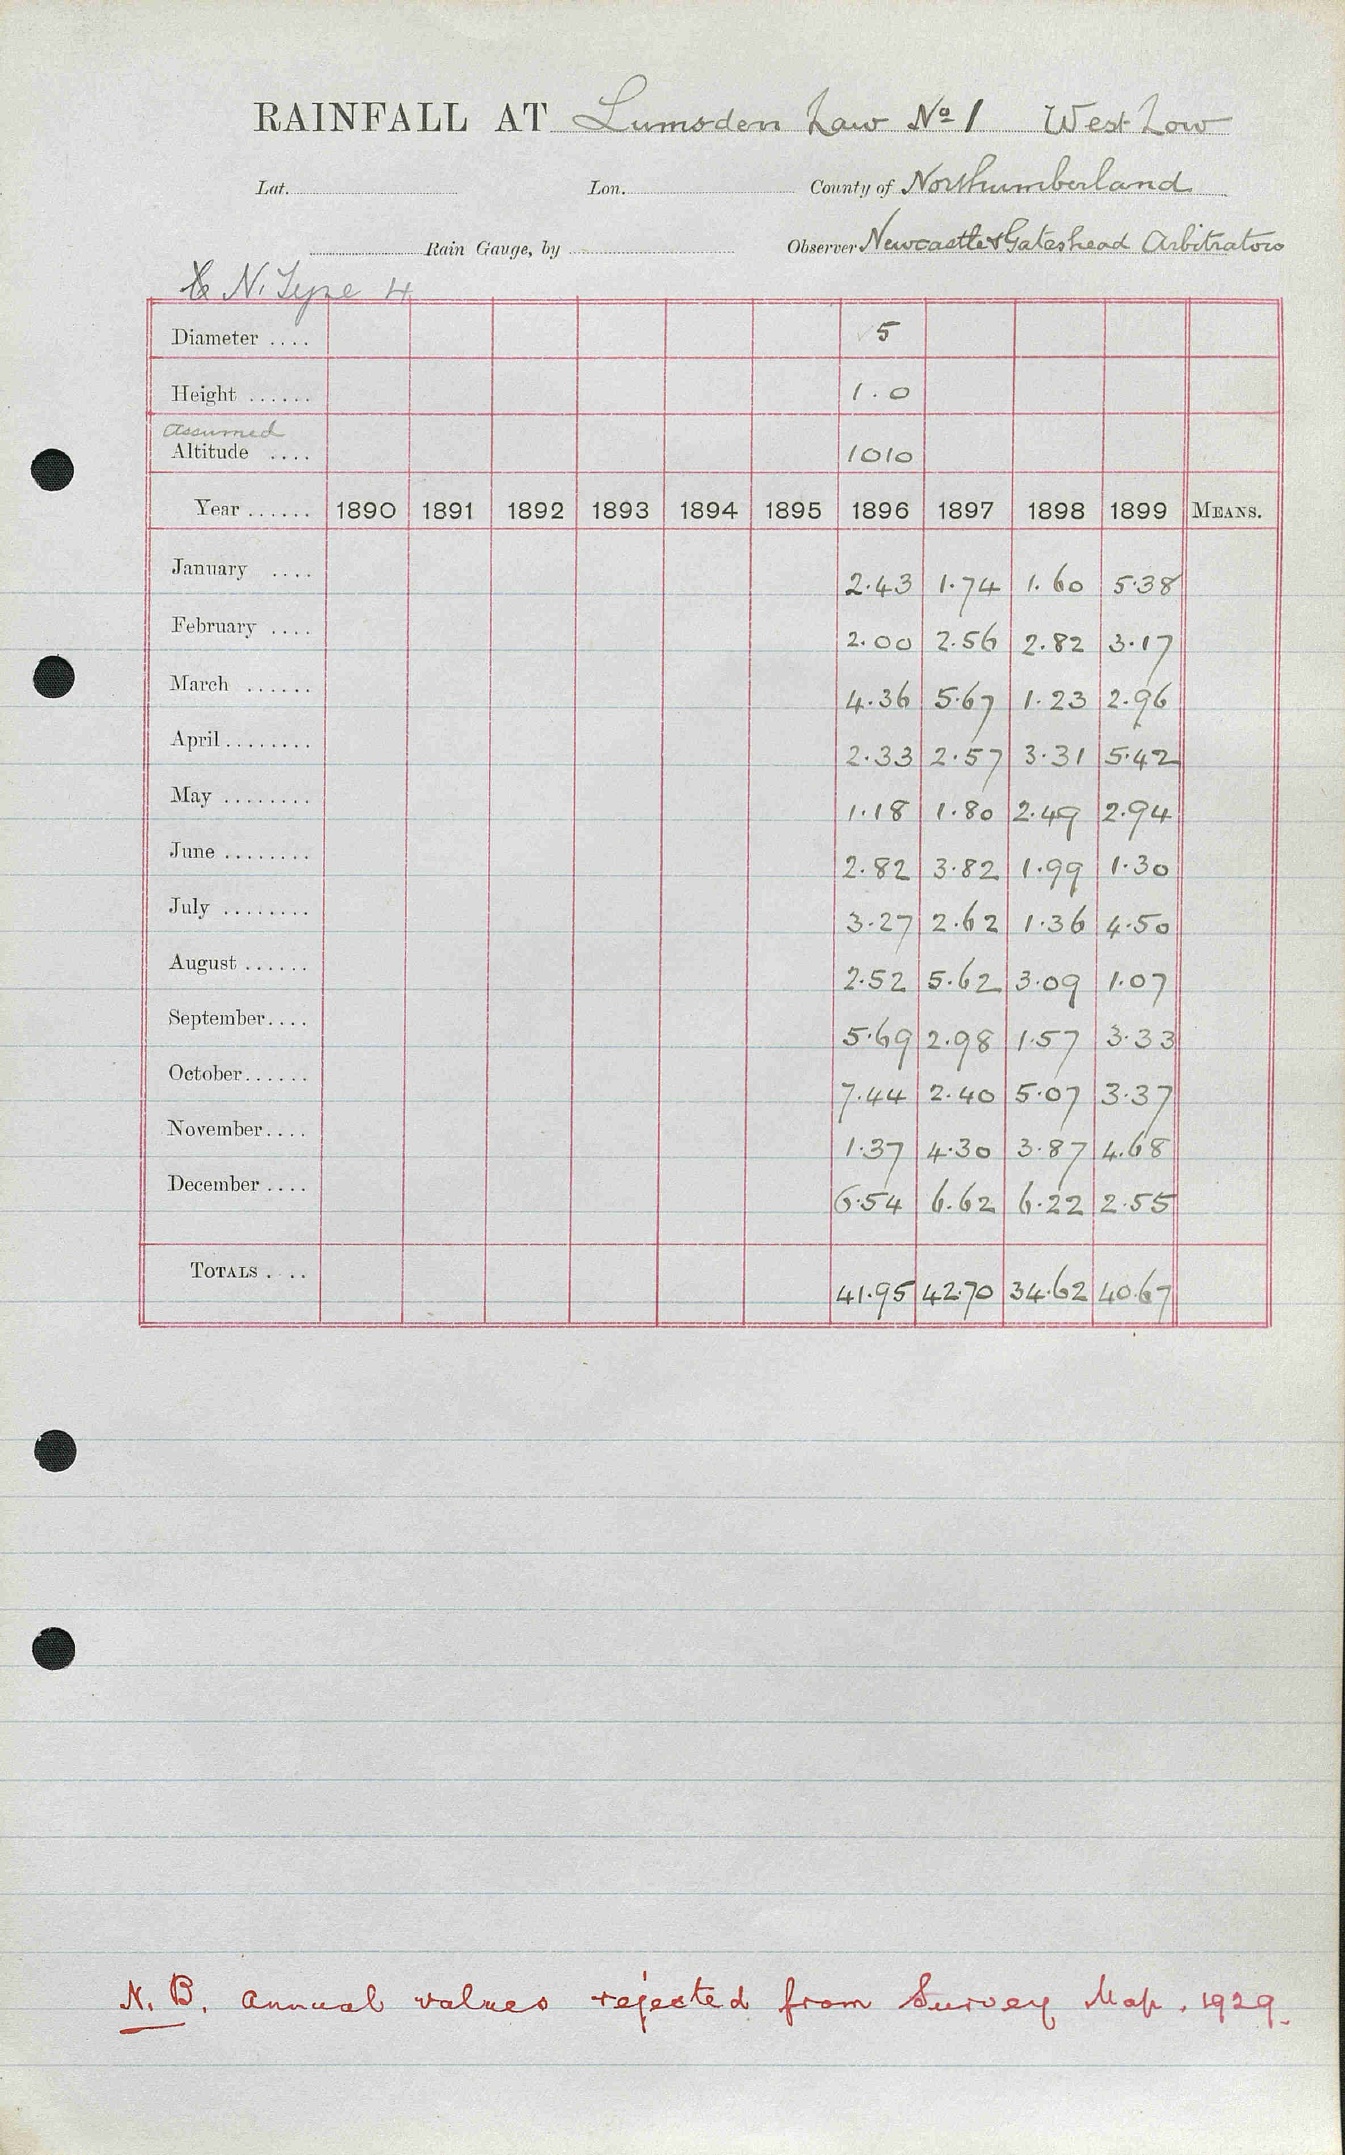 RAINFALL AT Lumsden Law Nº 1 West Low
Lat. Lon. County of Northumberland
Rain Gauge, by Observer Newcastle & Gateshead Arbitrators
N. Tyne 4
Diameter .... 5
Height ...... 1.0
Assumed
Altitude .... 1010
Year ...... 1890 1891 1892 1893 1894 1895 1896 1897 1898 1899 MEANS.
January .... 2.43 1.74 1.60 5.38
February .... 2.00 2.56 2.82 3.17
March ...... 4.36 5.67 1.23 2.96
April ........ 2.33 2.57 3.31 5.42
May ........ 1.18 1.80 2.49 2.94
June ........ 2.82 3.82 1.99 1.30
July ........ 3.27 2.62 1.36 4.50
August ...... 2.52 5.62 3.09 1.07
September.... 5.69 2.98 1.57 3.33
October...... 7.44 2.40 5.07 3.37
November.... 1.37 4.30 3.87 4.68
December .... 6.54 6.62 6.22 2.55
TOTALS .... 41.95 42.70 34.62 40.67
N.B. Annual values rejected from Survey Map. 1929.